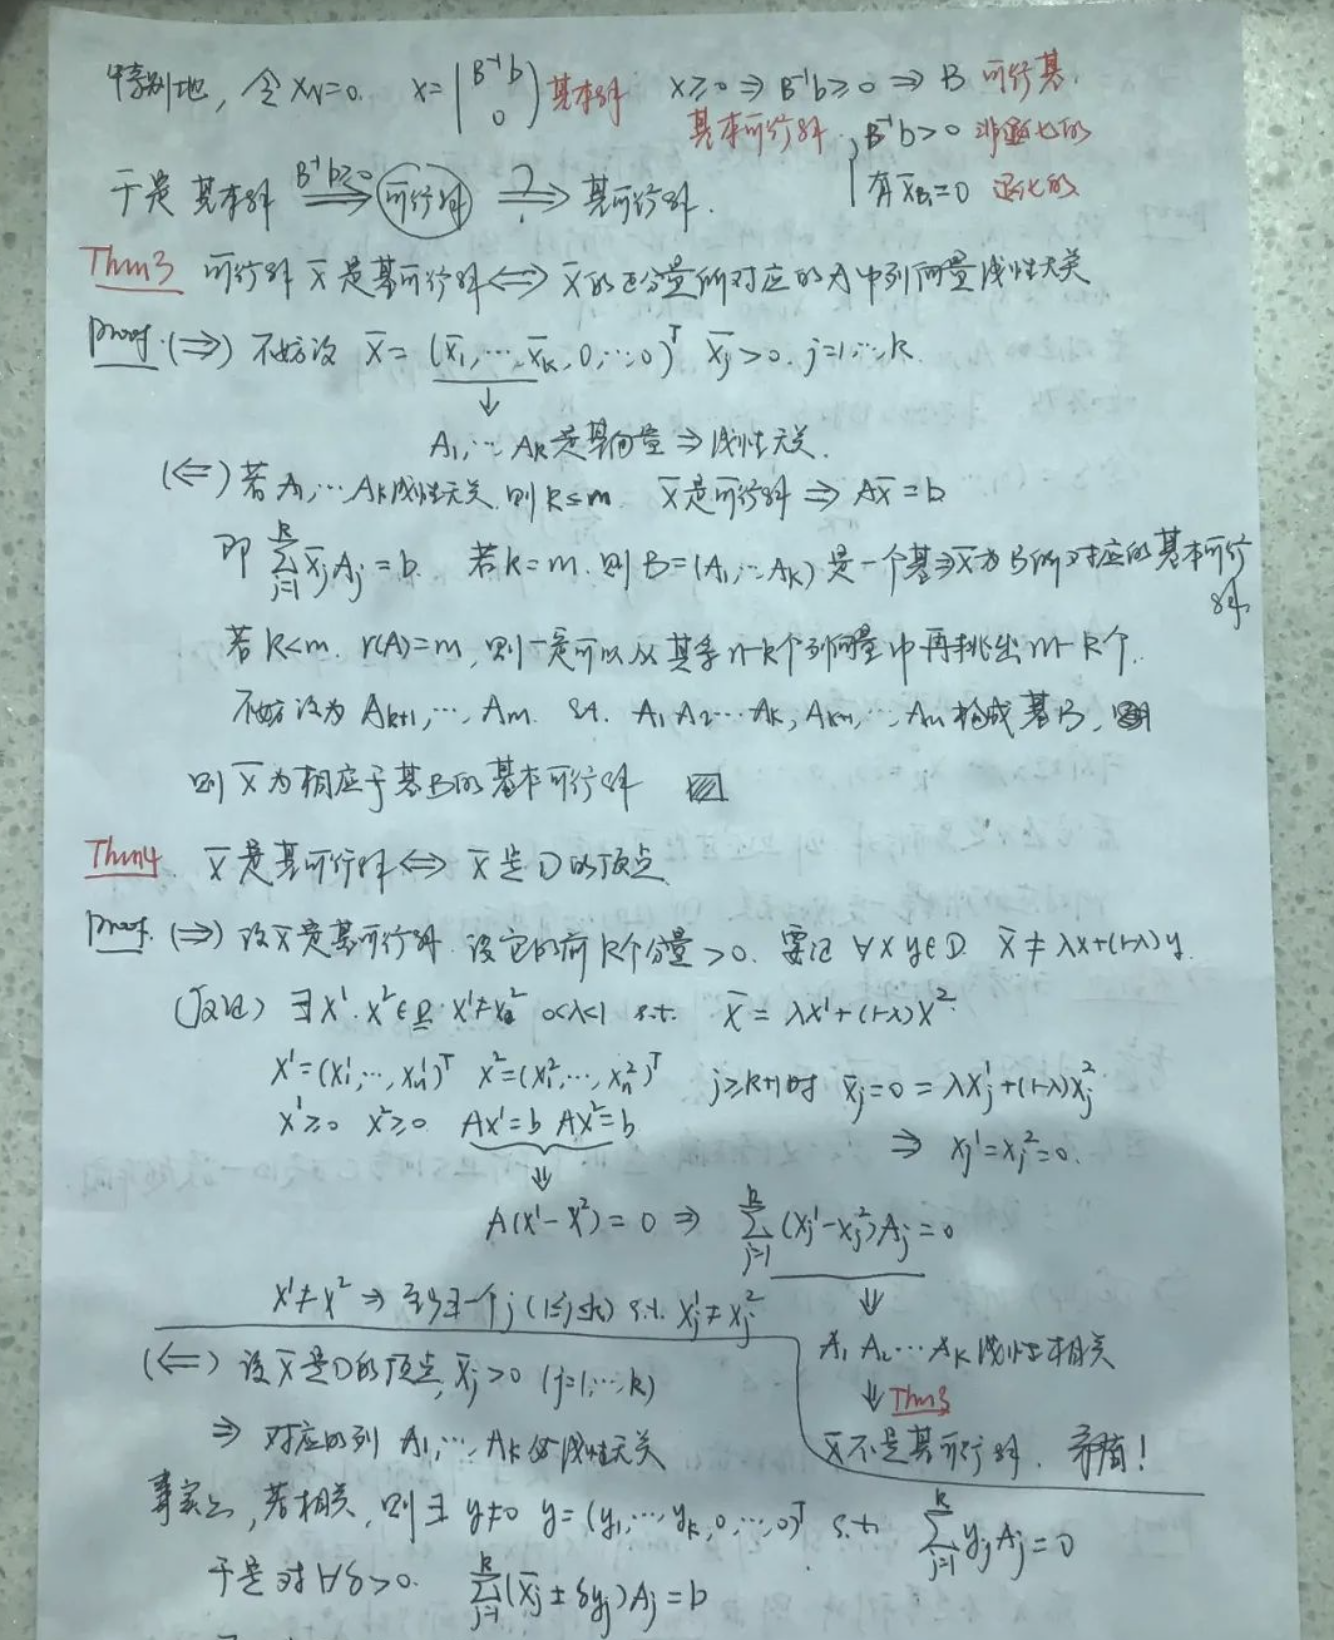 特别地, 令 x_N=0. x=(B⁻¹b 0) 基本解 x≥0 ⇒ B⁻¹b≥0 ⇒ B 可行基.
基本可行解, B⁻¹b>0 非退化的
于是 基本解 B⁻¹b≥0 ⟹ 可行解 ?⟹ 基可行解.
有 x̄_Bi=0 退化的
Thm3 可行解 x̄ 是基可行解 ⟺ x̄ 的正分量所对应的A中列向量线性无关
proof. (⇒) 不妨设 x̄ = (x̄₁,…,x̄ₖ,0,…,0)ᵀ x̄ⱼ>0. j=1,…,k.
↓
A₁,… Aₖ 是基向量 ⇒ 线性无关.
(⇐) 若 A₁,… Aₖ 线性无关. 则 k≤m. x̄ 是可行解 ⇒ Ax̄=b
即 ∑ⱼ₌₁ᵏ x̄ⱼAⱼ=b. 若 k=m. 则 B=(A₁,… Aₖ) 是一个基⇒x̄为B所对应的基本可行
解.
若 k<m. r(A)=m, 则一定可以从其余 n-k个列向量中再挑出 m-k个.
不妨设为 Aₖ₊₁,…, Aₘ. s.t. A₁ A₂… Aₖ, Aₖ₊₁,…, Aₘ 构成基B,
则 x̄ 为相应于基B的基本可行解
Thm4. x̄ 是基可行解 ⟺ x̄ 是 D 的顶点
proof. (⇒) 设x̄是基可行解. 设它的前 k个分量 >0. 要证 ∀x y∈D. x̄ ≠ λx+(1-λ)y.
(反证) ∃x¹. x²∈D. x¹≠x² 0<λ<1 s.t. x̄ = λx¹+(1-λ)x².
x¹=(x₁¹,…,xₙ¹)ᵀ x²=(x₁²,…,xₙ²)ᵀ j≥k+1时 x̄ⱼ=0=λxⱼ¹+(1-λ)xⱼ²
x¹≥0 x²≥0 Ax¹=b Ax²=b
⇒ xⱼ¹=xⱼ²=0.
⇓
A(x¹-x²)=0 ⇒ ∑ⱼ₌₁ᵏ (xⱼ¹-xⱼ²)Aⱼ=0
x¹≠x² ⇒ 至少∃一个 j (1≤j≤k) s.t. xⱼ¹≠xⱼ²
⇓
A₁ A₂… Aₖ 线性相关
⇓ Thm3
x̄不是基可行解. 矛盾!
(⇐) 设x̄是D的顶点, x̄ⱼ>0 (j=1,…,k)
⇒ 对应的列 A₁,…, Aₖ 必线性无关
事实上, 若相关, 则 ∃ y≠0 y=(y₁,…yₖ,0,…,0)ᵀ s.t. ∑ⱼ₌₁ᵏ yⱼAⱼ=0
于是对 ∀δ>0. ∑ⱼ₌₁ᵏ(x̄ⱼ±δyⱼ)Aⱼ=b